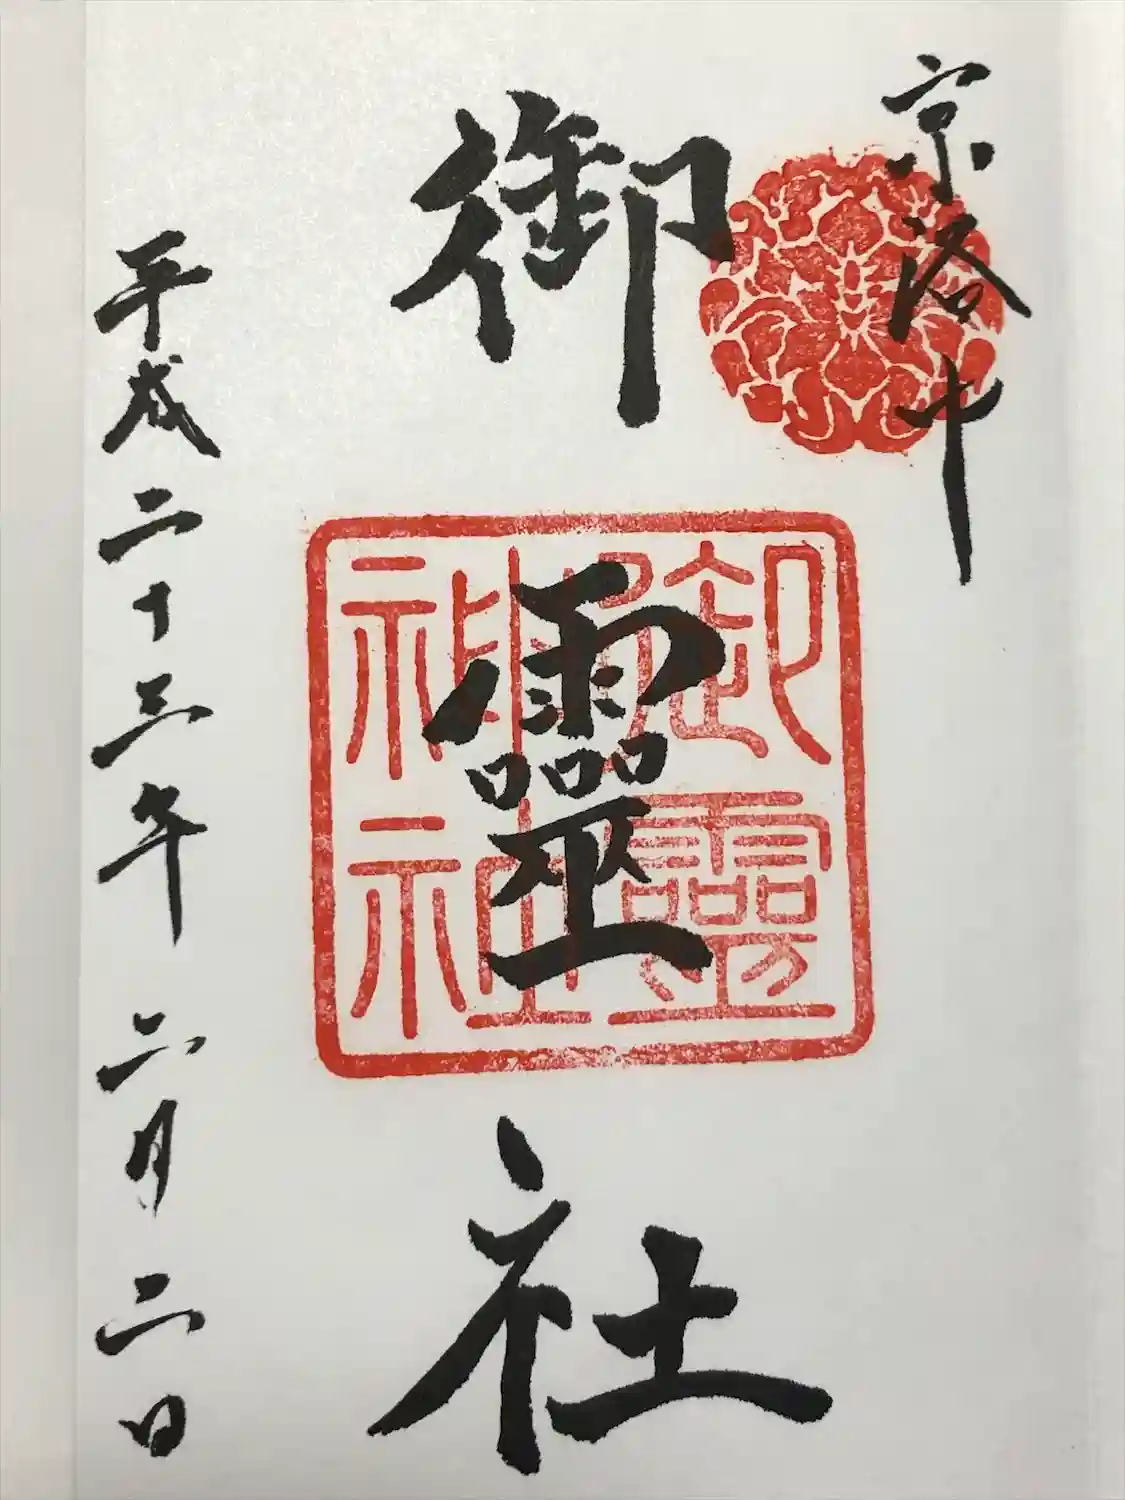 京洛中
御靈社
御靈神社
平成二十三年二月二日